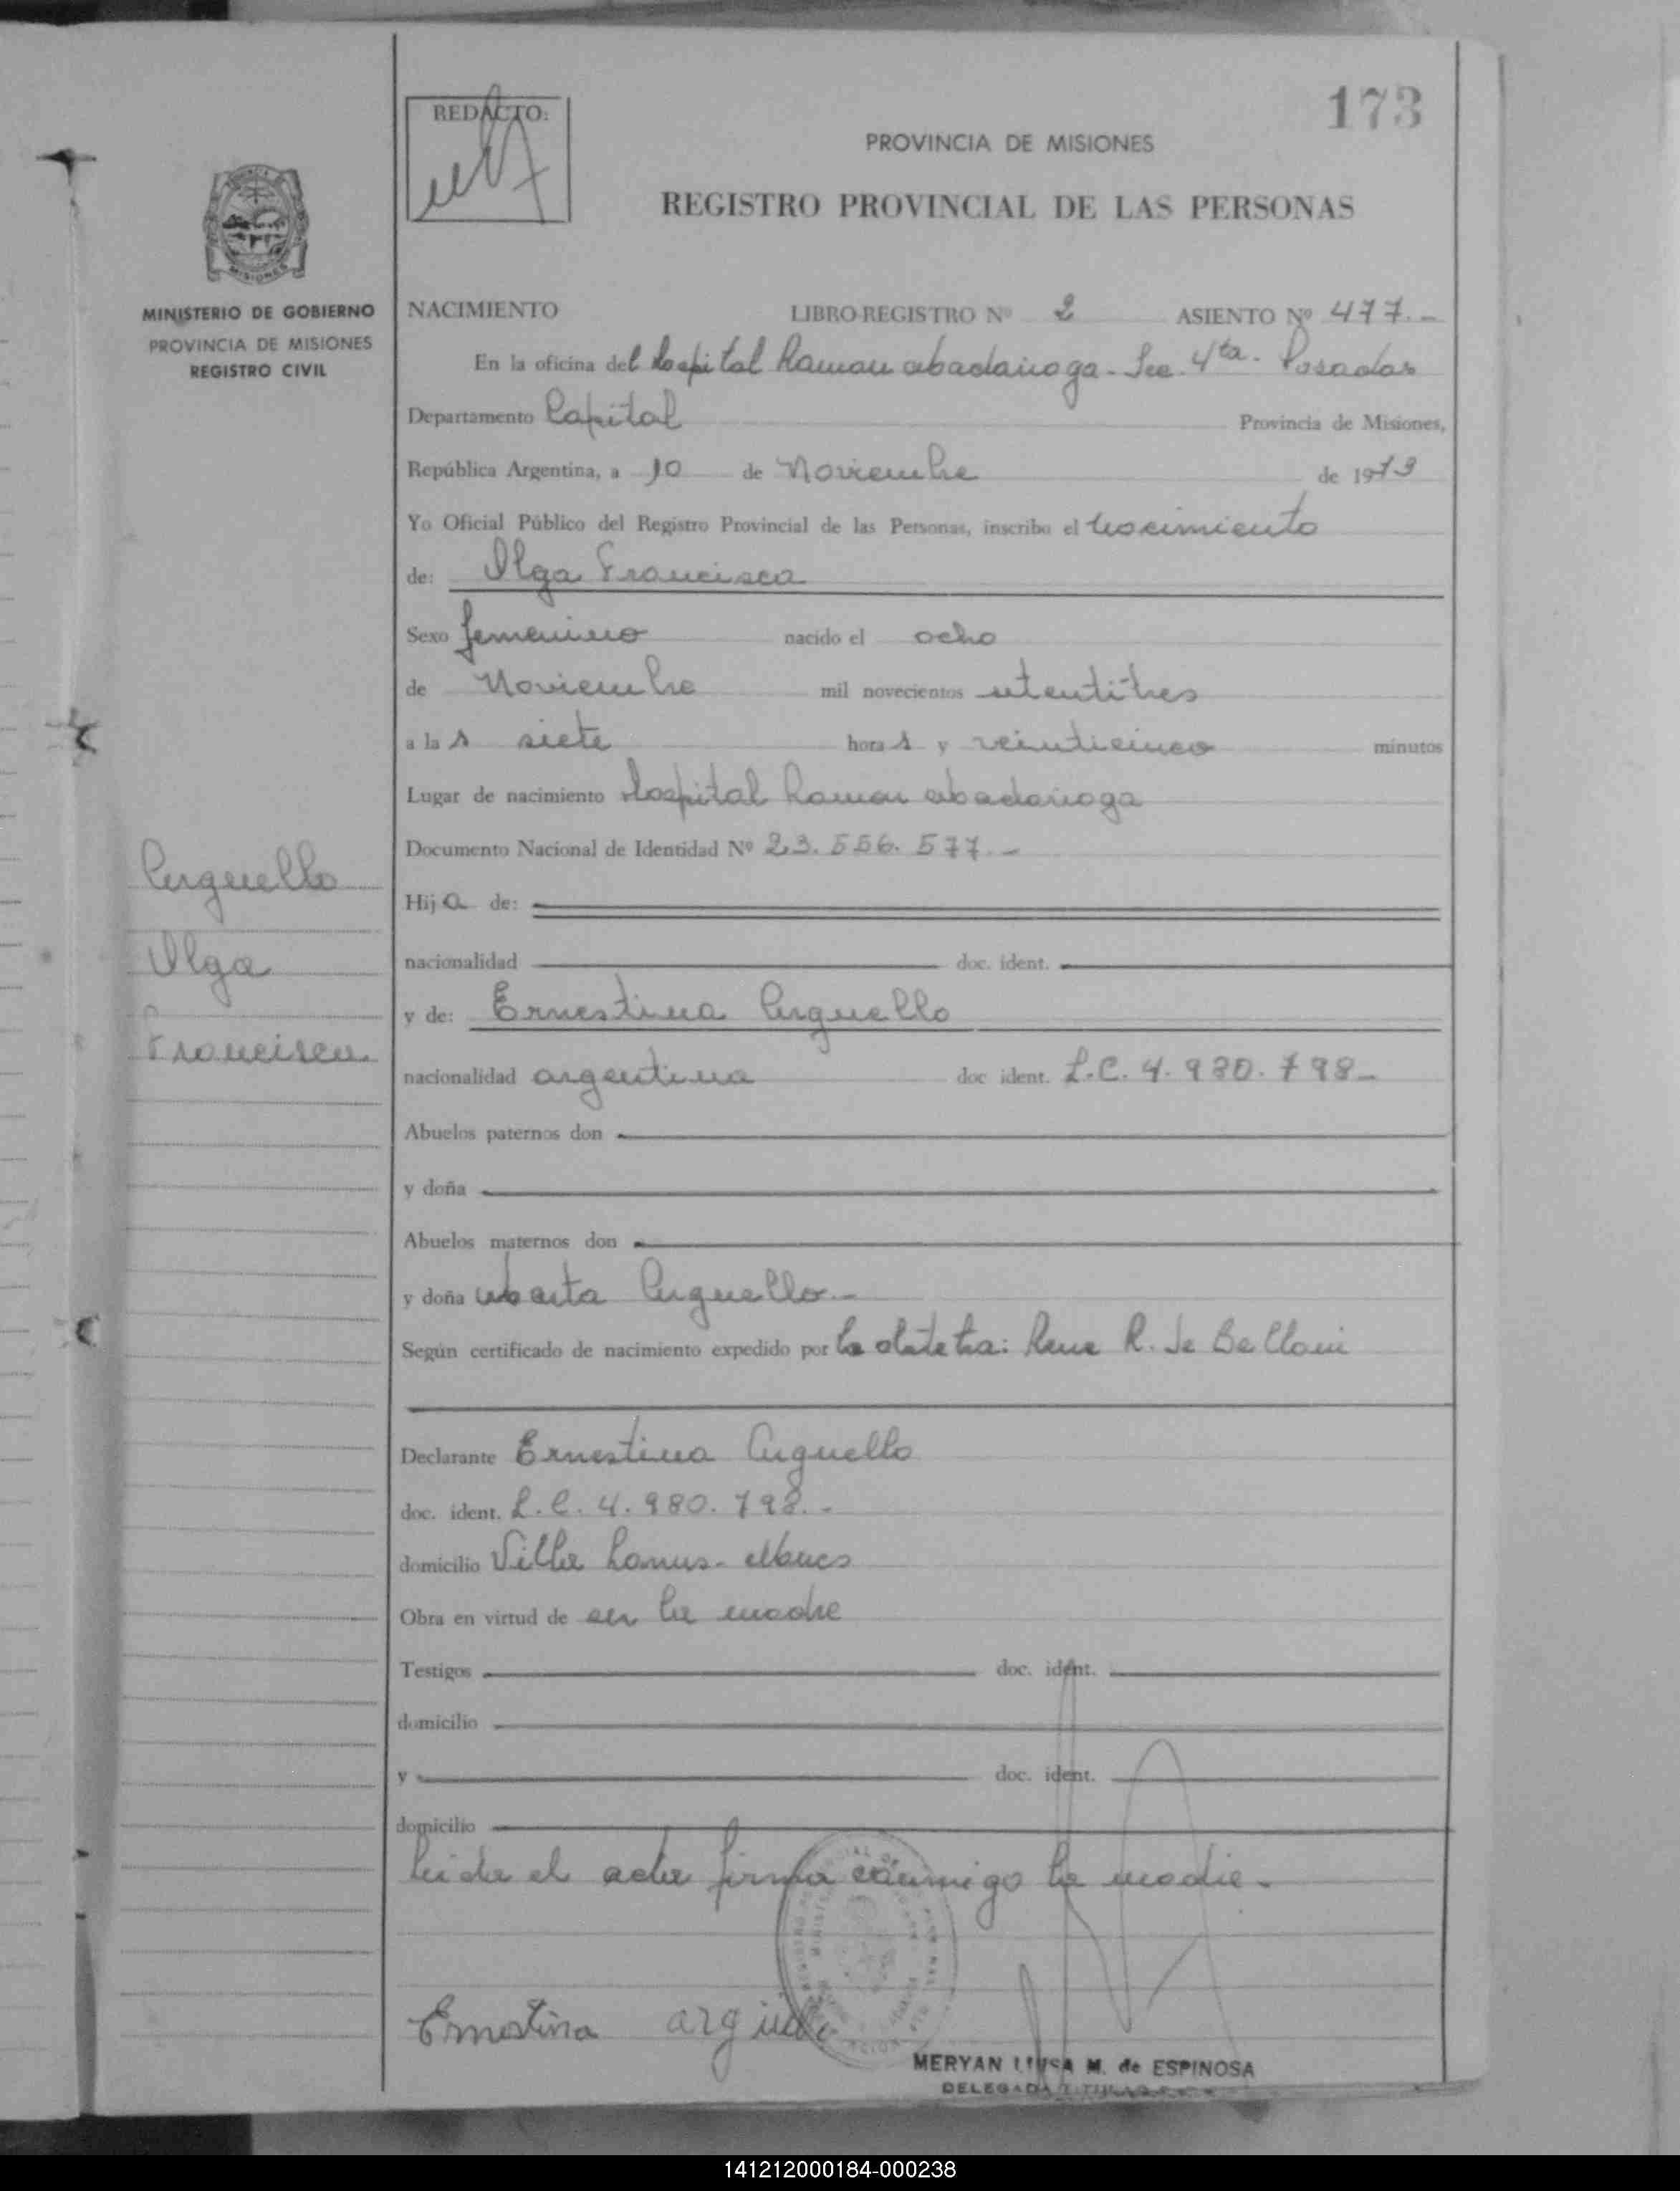 173
REDACTO:
PROVINCIA DE MISIONES
REGISTRO PROVINCIAL DE LAS PERSONAS
MINISTERIO DE GOBIERNO
PROVINCIA DE MISIONES
REGISTRO CIVIL
NACIMIENTO LIBRO-REGISTRO Nº 2 ASIENTO Nº 477.-
En la oficina del Hospital Ramon Madariaga - Sec. 4ta. Posadas
Departamento Capital Provincia de Misiones,
República Argentina, a 10 de Noviembre de 1973
Yo Oficial Público del Registro Provincial de las Personas, inscribo el nacimiento
de: Olga Francisca
Sexo femenino nacido el ocho
de Noviembre mil novecientos setentitres
a las siete horas y veinticinco minutos
Lugar de nacimiento Hospital Ramon Madariaga
Documento Nacional de Identidad Nº 23.556.577.-
Arguello
Olga
Francisca
Hija de:
nacionalidad doc. ident.
y de: Ernestina Arguello
nacionalidad argentina doc ident. L.C. 4.980.798-
Abuelos paternos don
y doña
Abuelos maternos don
y doña Marta Arguello.-
Según certificado de nacimiento expedido por la obstetra: Rene R. de Belloni
Declarante Ernestina Arguello
doc. ident. L.C. 4.980.798.-
domicilio Villa Lanus - Mnes
Obra en virtud de ser la madre
Testigos doc. ident.
domicilio
y doc. ident.
domicilio
leida el acta firma conmigo la madre.
Ernestina arguello
MERYAN LUISA M. de ESPINOSA
DELEGADA TITULAR
141212000184-000238